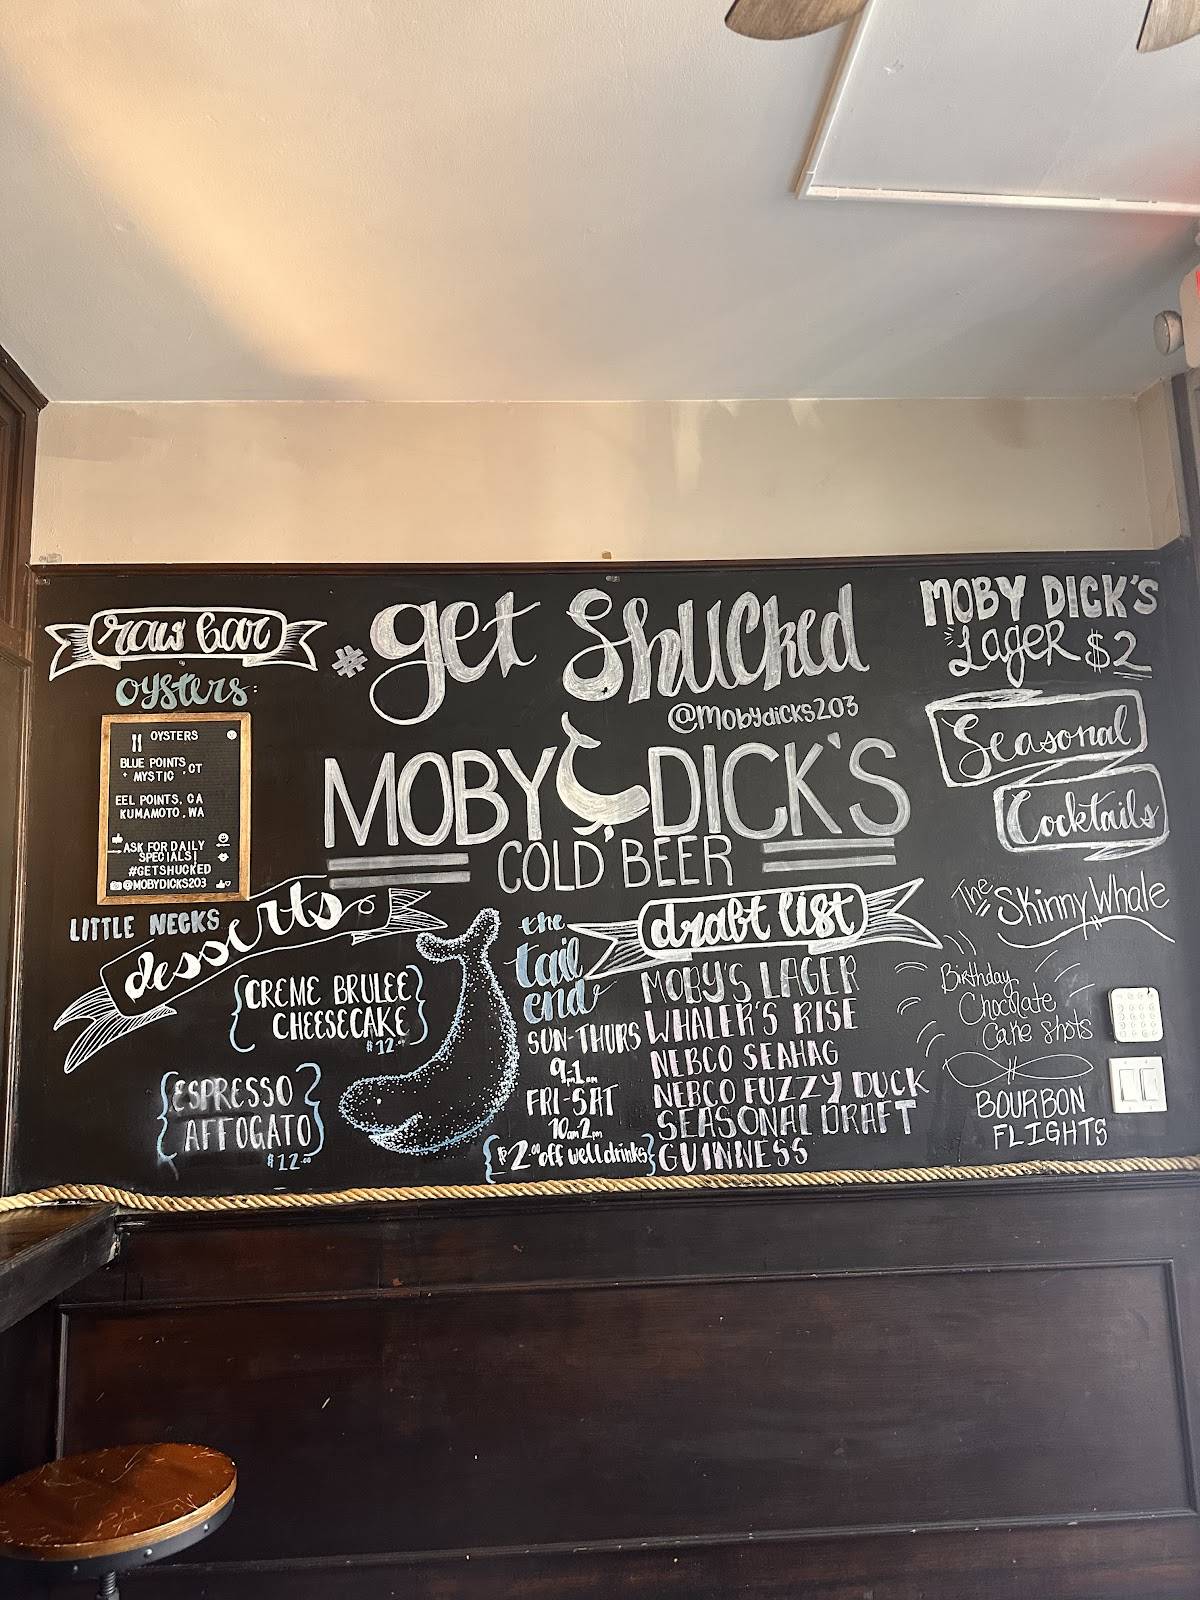 raw bar
oysters:
OYSTERS
BLUE POINTS
MYSTIC, CT
EEL POINTS, CA
KUMAMOTO, WA
ASK FOR DAILY
SPECIALS!
#GETSHUCKED
@MOBYDICKS203
LITTLE NECKS
desserts
{CREME BRULEE
CHEESECAKE}
$12.00
{ESPRESSO
AFFOGATO}
$12.00
#get Shucked
@Mobydicks203
MOBY DICK'S
COLD BEER
the
tail
end
SUN-THURS
9pm-1am
FRI-SAT
10pm-2am
{$2.00 off well drinks}
draft list
MOBY'S LAGER
WHALER'S RISE
NEBCO SEAHAG
NEBCO FUZZY DUCK
SEASONAL DRAFT
GUINNESS
MOBY DICK'S
LAGER $2
Seasonal
Cocktails
The Skinny Whale
Birthday
Chocolate
Cake Shots
BOURBON
FLIGHTS